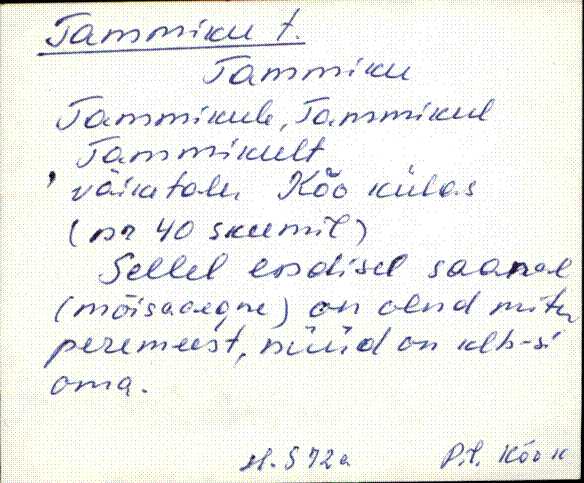 Tammiku t.
Tammiku
Tammikule, Tammikul
Tammikult
väiketalu Kõo külas
(nr 40 skeemil)
Sellel endisel saunal
(mõisaaegne) on olnd mitu
peremeest, nüüd on klh-si
oma.
Pil. Kõo k